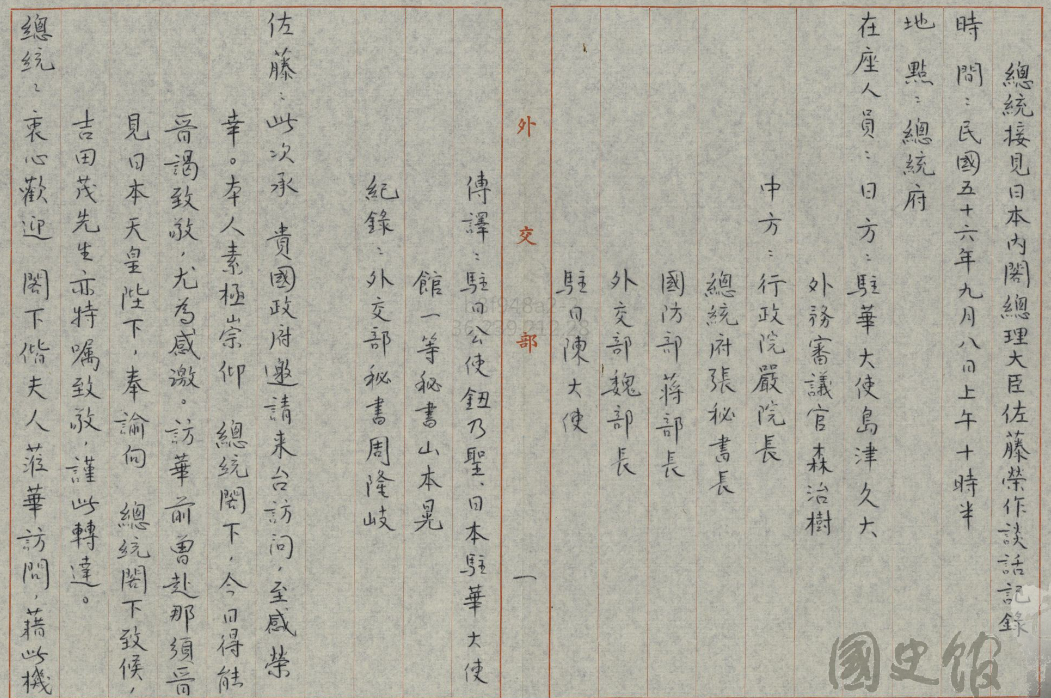 總統接見日本內閣總理大臣佐藤榮作談話記錄
時 間：民國五十六年九月八日上午十時半
地 點：總統府
在座人員：日方：駐華大使島津久大
外務審議官森治樹
中方：行政院嚴院長
總統府張秘書長
國防部蔣部長
外交部魏部長
駐日陳大使
外交部
一
傳譯：駐日公使鈕乃聖、日本駐華大使
館一等秘書山本晃
紀錄：外交部秘書周隆岐
佐藤：此次承 貴國政府邀請來台訪問，至感榮
幸。本人素極崇仰 總統閣下，今日得能
晉謁致敬，尤為感激。訪華前曾赴那須晉
見日本天皇陛下，奉諭向 總統閣下致候，
吉田茂先生亦特囑致敬，謹此轉達。
總統：衷心歡迎 閣下偕夫人蒞華訪問，藉此機
國史館